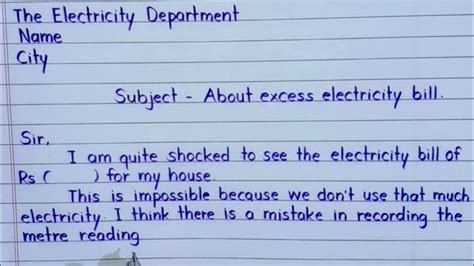 The Electricity Department
Name
City
Subject - About excess electricity bill.
Sir,
I am quite shocked to see the electricity bill of
Rs (      ) for my house.
This is impossible because we don't use that much
electricity. I think there is a mistake in recording the
metre reading